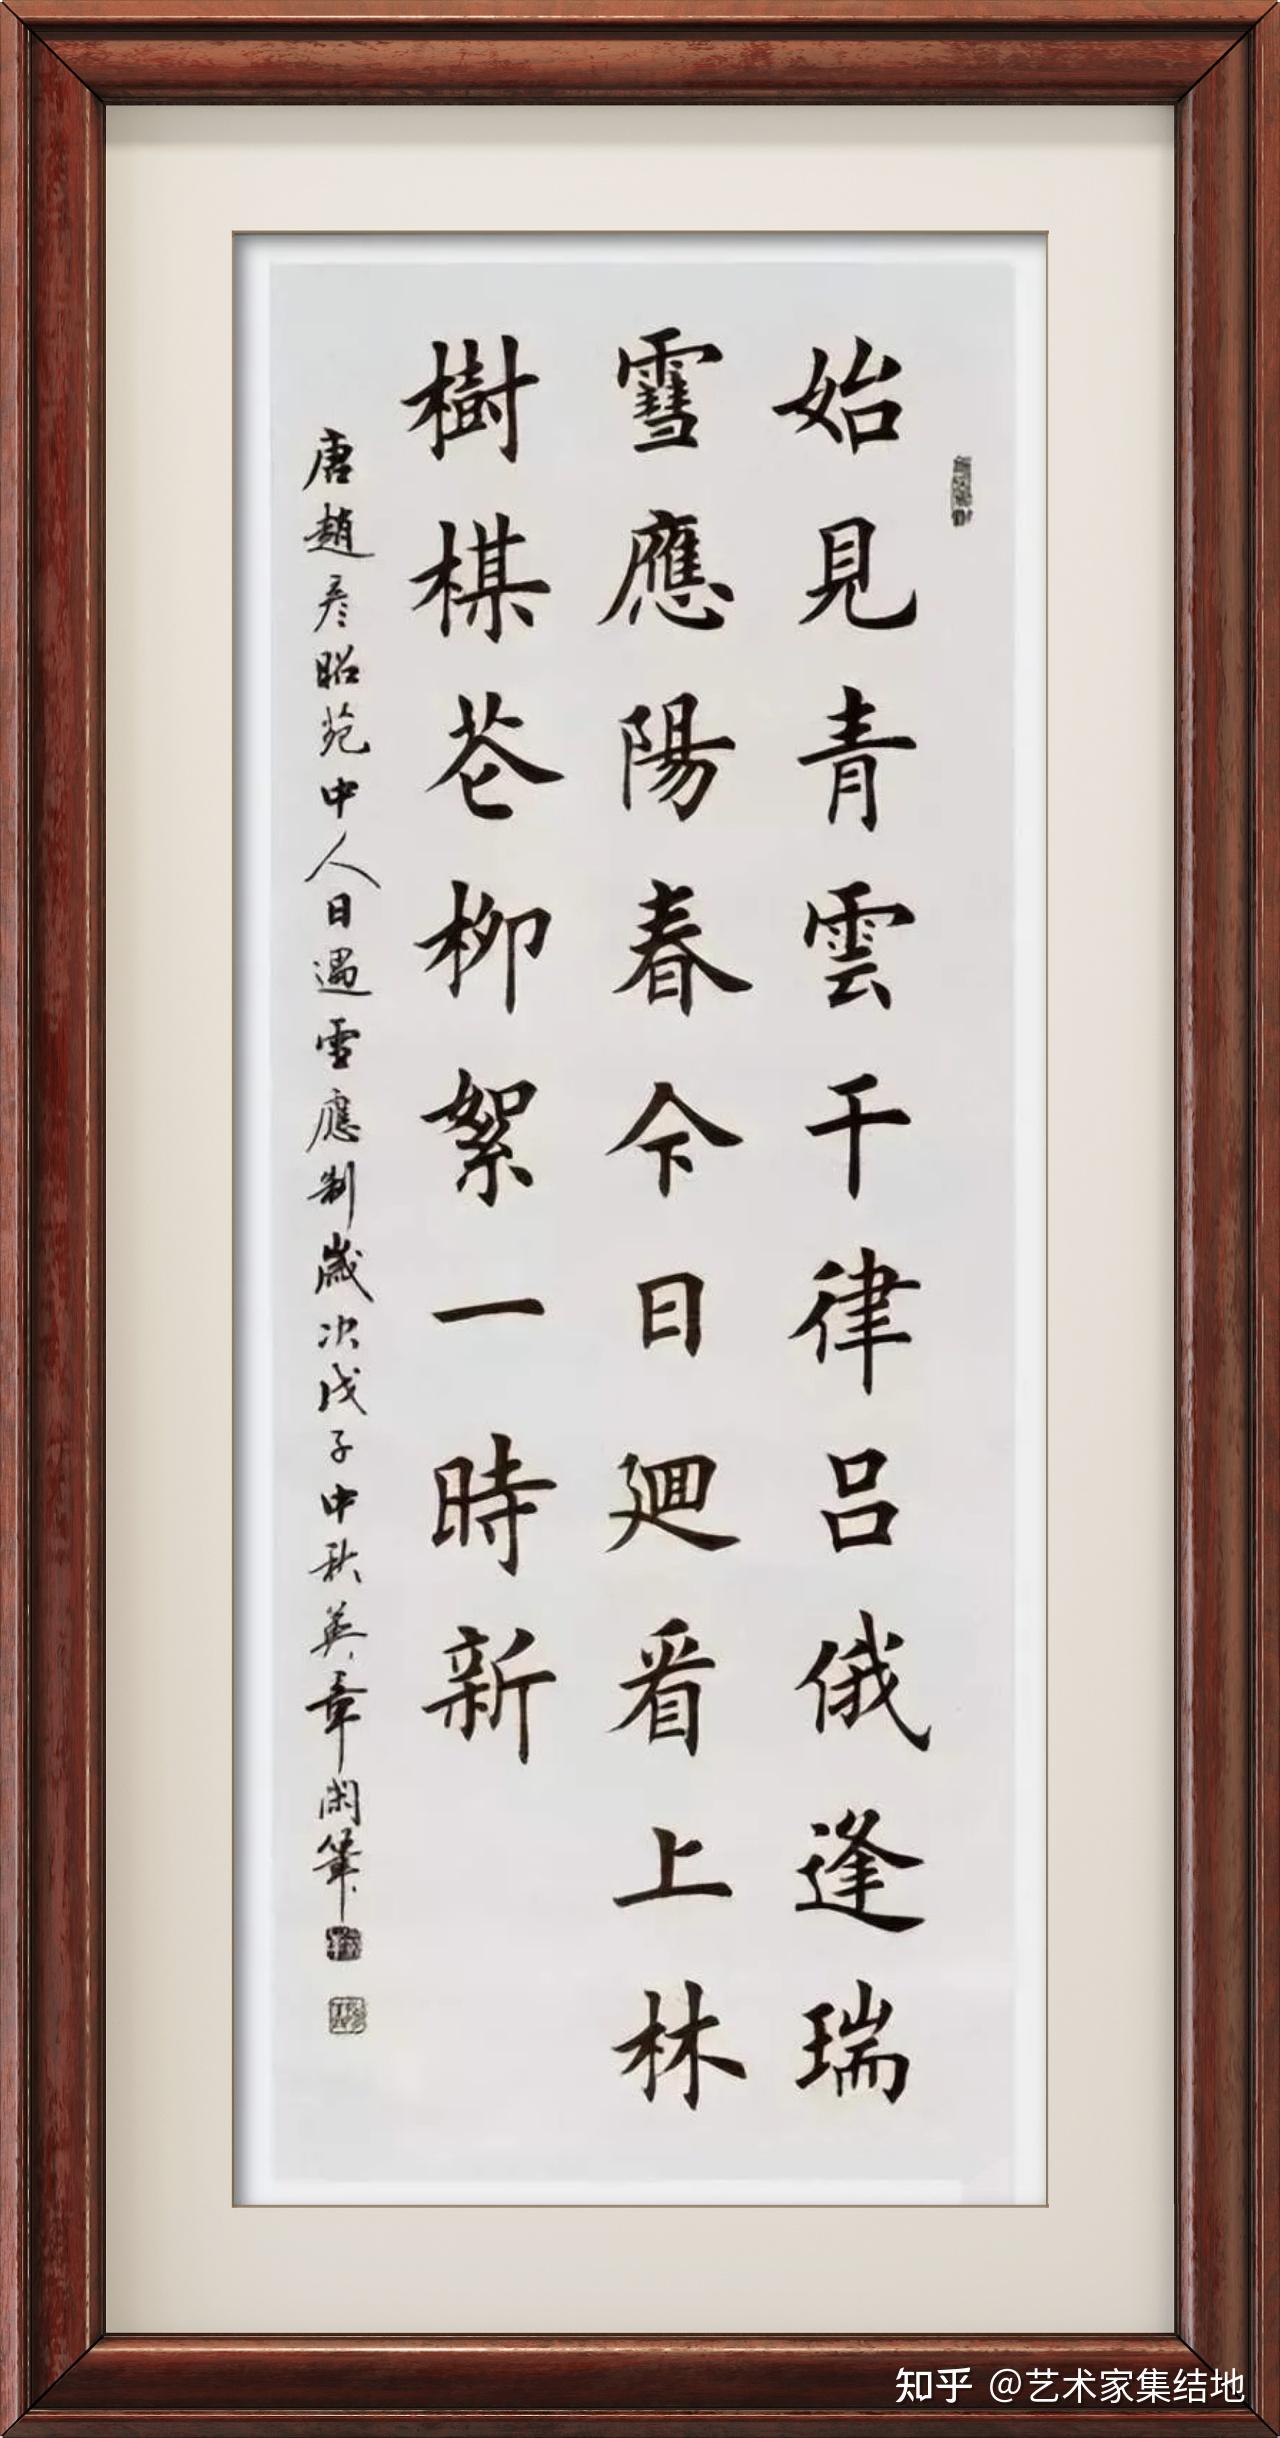 始見青雲干律呂俄逢瑞
雪應陽春今日廻看上林
樹楳苍柳絮一時新
唐趙彦昭苑中人日遇雪應制歲次戊子中秋英章闲筆
知乎 @艺术家集结地